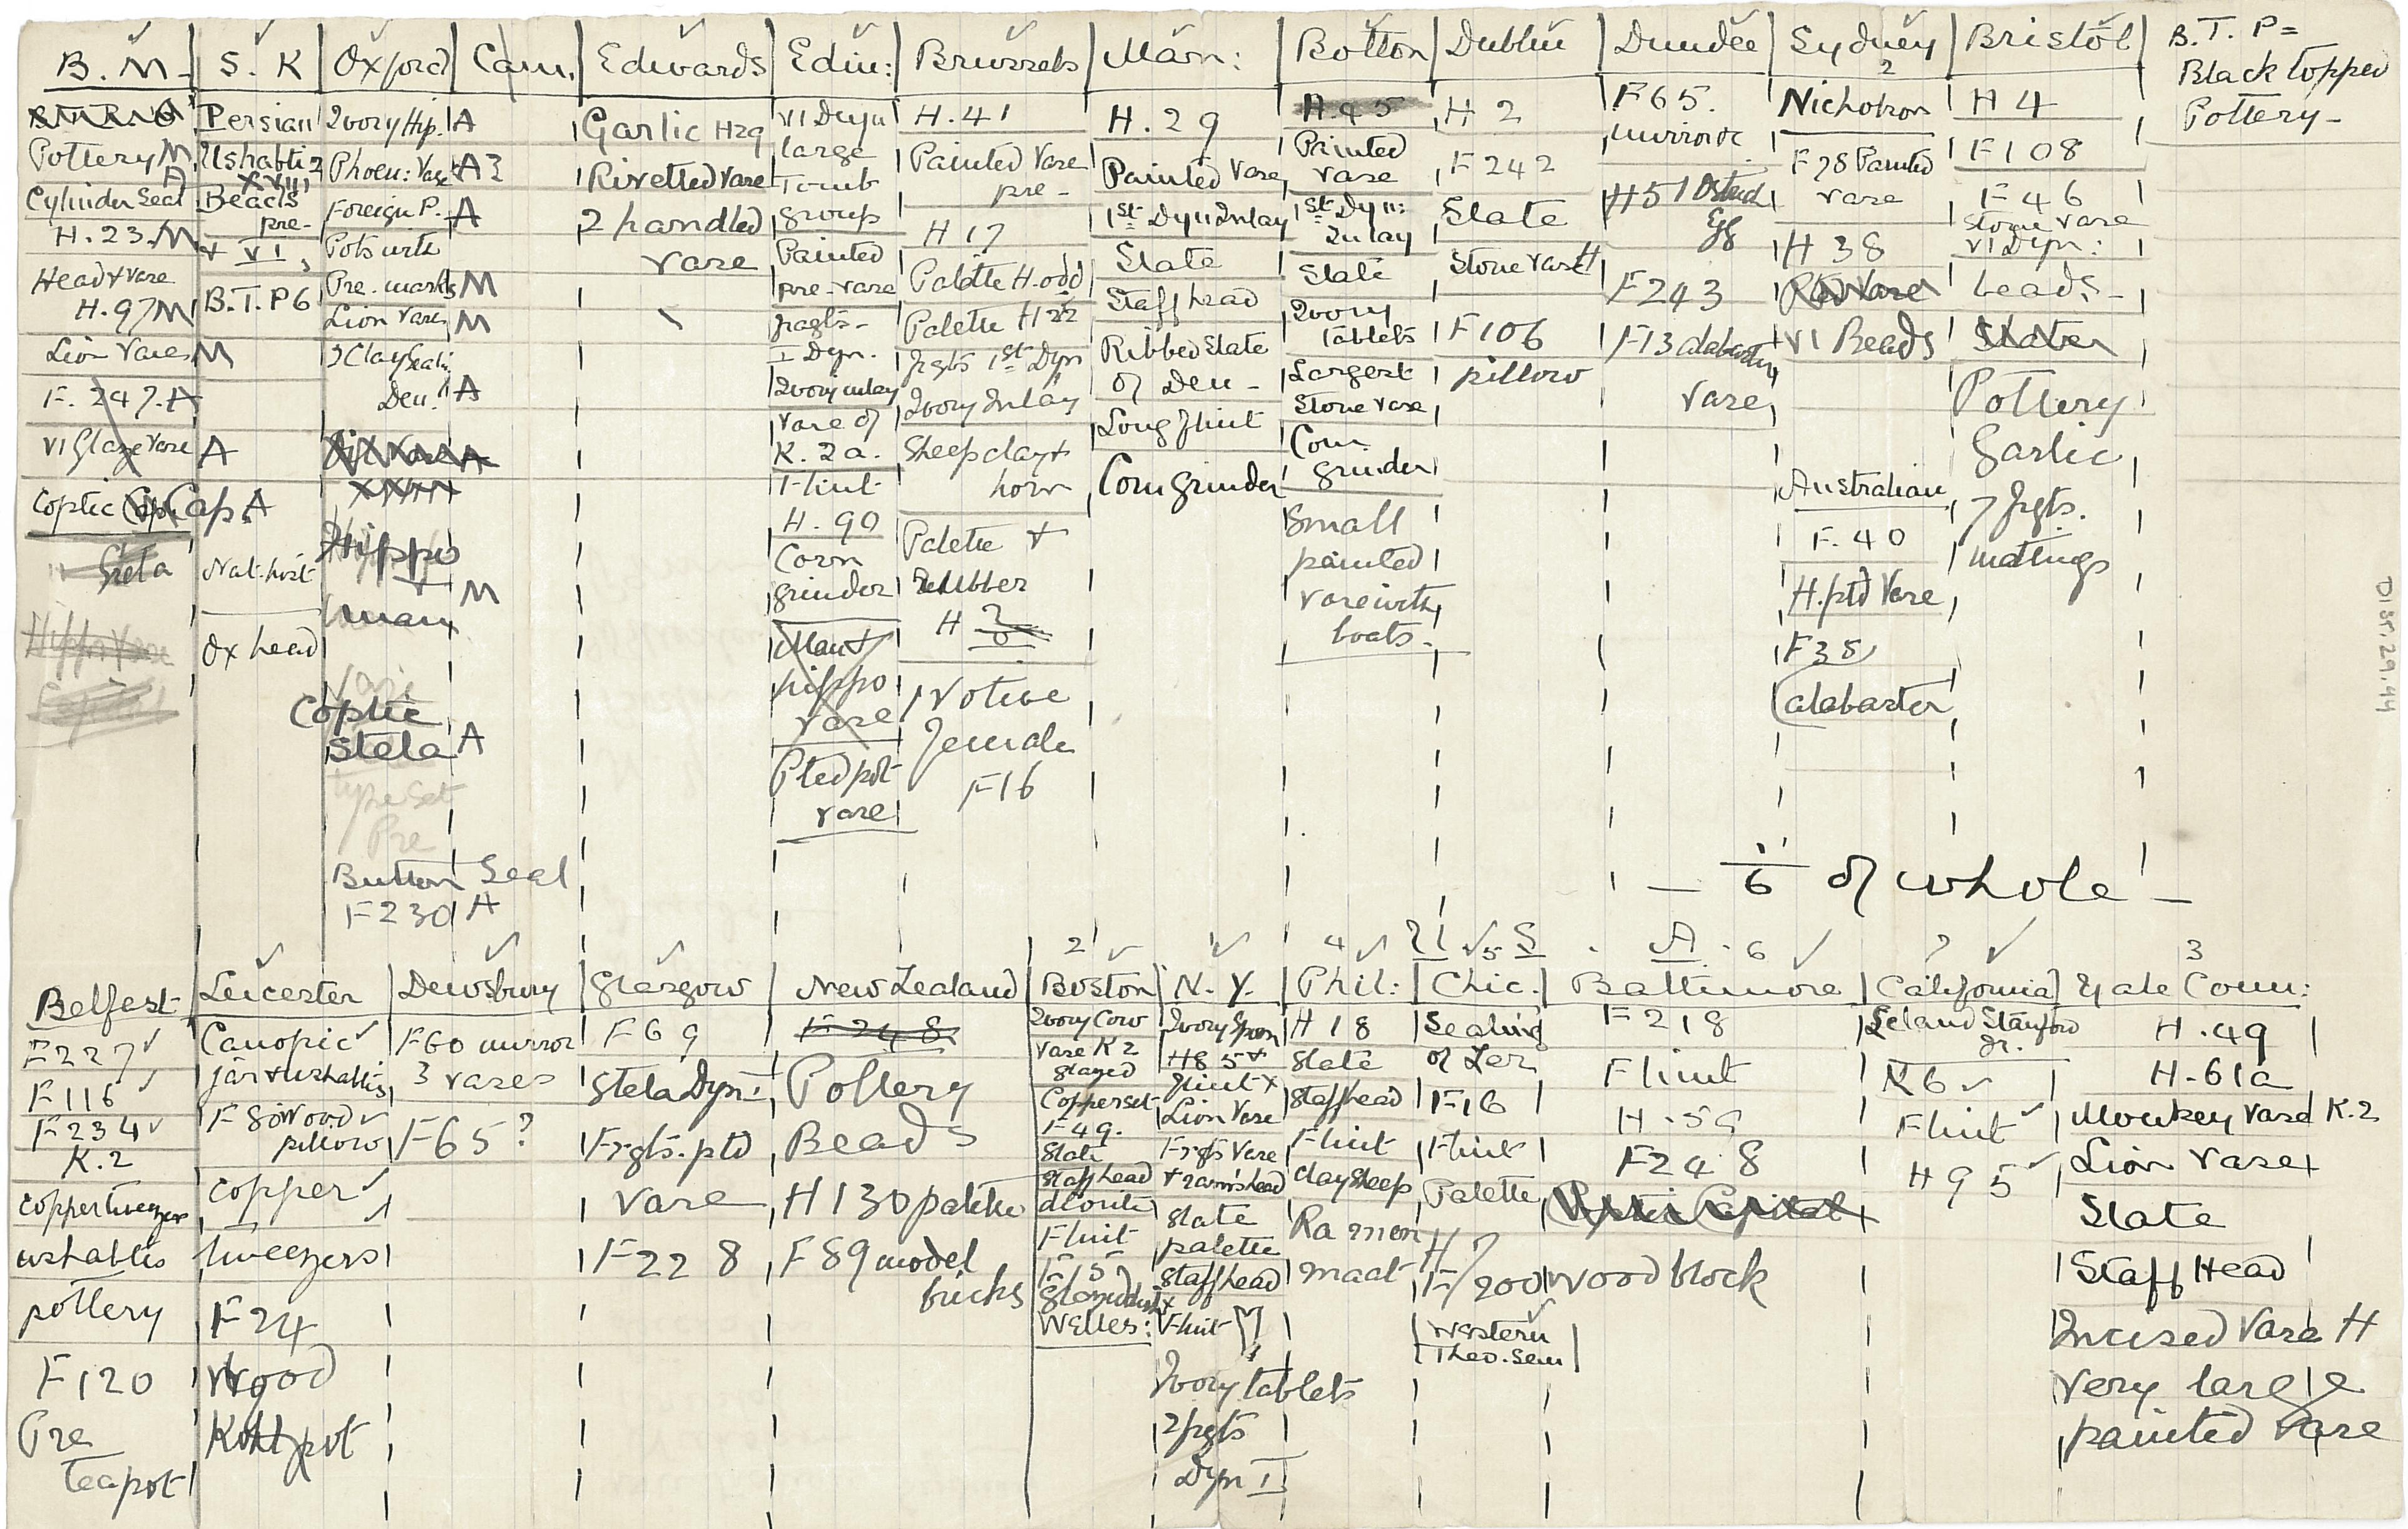 B.M.
Pottery M
A
Cylinder Seal
H.23. M
Head & vase
H.97 M
Lion Vases M
F. 247. A
VI Glaze Vase A
Coptic Cap. A
Stela
Hippo Vase
S. K
Persian
Ushabti 2
XVIII
Beads
pre-
& VI,
B.T.P 6
Nat. hist
Ox head
Oxford
Cam.
Ivory Hip. A
Phoen: Vase A?
Foreign P. A
Pots with
Pre. marks M
Lion Vases M
3 Clay Seali
Den. A
Hippo
+
man M
Coptic
Stela A
type set
Pre
Button Seal
F230 A
Edwards
Garlic H29
Rivetted vase
2 handled
vase
Edin:
VI Dyn
large
Tomb
group
Painted
pre-vase
fragts-
I Dyn.
Ivory inlay
Vase of
K. 2a.
Flint
H. 90
Corn
grinder
Man &
hippo
vase
Pted pot
vase
Brussels
H. 41
Painted Vase
pre-
H 17
Palette H.odd
Palette H22
frgts 1st Dyn
Ivory Inlay
Sheep clay &
horn
Palette +
Rubber
H
1 Votive
female
F16
Man:
H. 29
Painted Vase
1st Dyn Inlay
Slate
Staff head
Ribbed Slate
of Den -
Long flint
Corn grinder
Bolton
H.95
Painted
vase
1st Dyn:
Inlay
Slate
Ivory
Tablets
Largest
Stone vase
Corn
grinder
Small
painted
vase with
boats-
Dublin
H 2
F 242
Slate
Stone vase H
F106
pillow
Dundee
F65.
mirror &c
H51 Ostrich
Egg
F243
F13 alabaster
vase
Sydney
2
Nicholson
F78 Painted
vase
H 38
Red Vase
VI Beads
Australian
F. 40
H. ptd Vase
F38
alabaster
Bristol
H 4
F108
F46
Stone vase
VI Dyn:
beads-
Slates
Pottery
Garlic
7 frgts.
mattings
B. T. P=
Black topped
Pottery-
D15r.29.44
6 of whole -
Belfast
F227
F116
F234
K.2
copper tweezers
ushabtis
pottery
F120
Pre
teapot
Leicester
Canopic
jar & ushabtis
F80 Wood
pillow
copper
tweezers
F24
Wood
Kohl pot
Dewsbury
F60 mirror
3 vases
F65?
Glasgow
F69
Stela Dyn I
Frgts. ptd
vase
F228
New Zealand
F248
Pottery
Beads
H130 palette
F89 model
bricks
2
Boston
Ivory Cow
Vase K2
glazed
Copper set
F49.
Slate
Staff head
diorite
Flint
F15
Welles:
1
N. Y.
Ivory Spoon
H85 +
flint +
Lion Vase
Frgts Vase
& ram's head
Slate
palette
Staff head
Flint
Ivory tablets
2 frgts
Dyn I
4
Phil:
H18
Slate
Staff head
Flint
Clay Sheep
Ra men
maat
U 5 S A 6
Chic.
Sealing
of Zer
F16
Flint
Palette
H7
F200 wood block
Western
Theo. Sem
Baltimore
F218
Flint
H.59
F248
Coptic Capital
7
California
Leland Stanford
Jr.
K6
Flint
H95
3
Yale Conn:
H.49
H.61a
Monkey Vase K.2
Lion Vase +
Slate
Staff Head
Incised Vase H
Very large
painted Vase